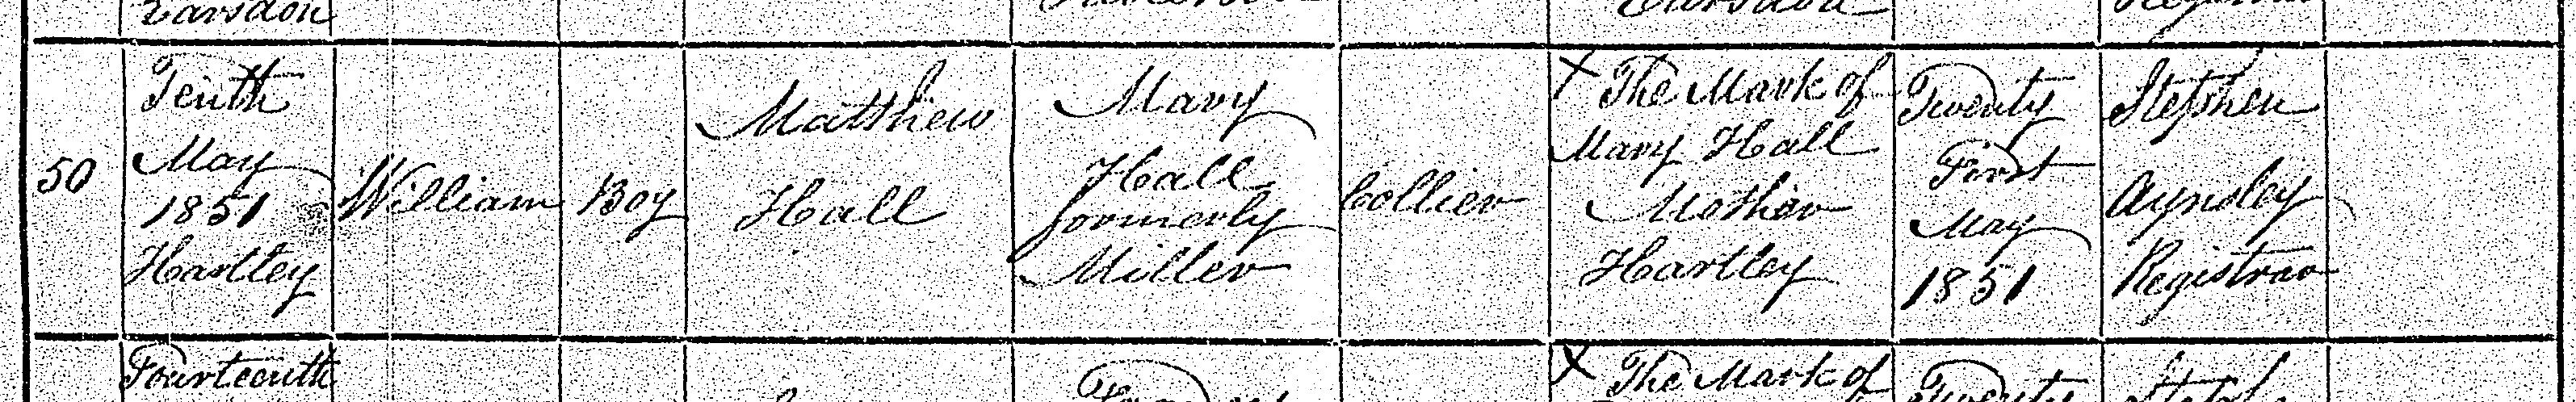 50
Tenth
May
1851
Hartley
William
Boy
Matthew
Hall
Mary
Hall
formerly
Miller
Collier
X The Mark of
Mary Hall
Mother
Hartley
Twenty
First
May
1851
Stephen
Aynsley
Registrar
Fourteenth
X The Mark of
Twenty